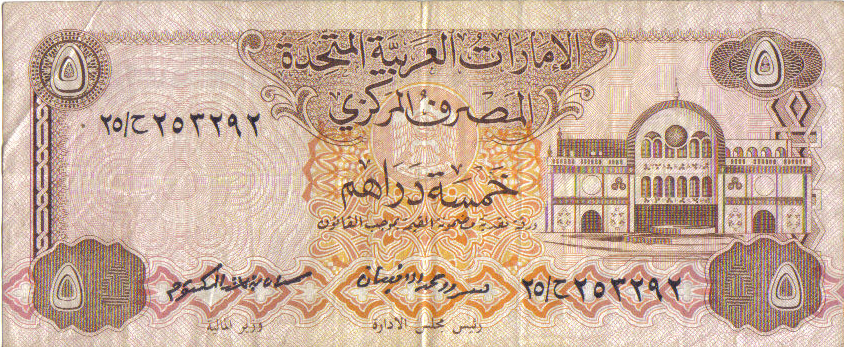 ٥ الإمارات العربية المتحدة ٥
المصرف المركزي
٢٥/ح ٢٥٣٢٩٢
خمسة دراهم
ورقة نقدية مضمونة القيمة بموجب القانون
٢٥/ح ٢٥٣٢٩٢
٥ ٥
وزير المالية رئيس مجلس الادارة